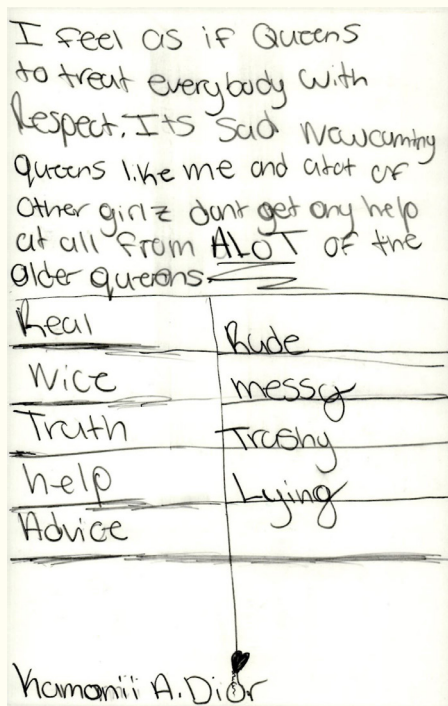 I feel as if Queens
to treat everybody with
Respect. Its sad Newcuming
queens like me and alot of
Other girlz dont get any help
at all from ALOT of the
older queens.
Real
Nice
Truth
help
Advice
Rude
messy
Trashy
Lying
Kamanii A. Dior